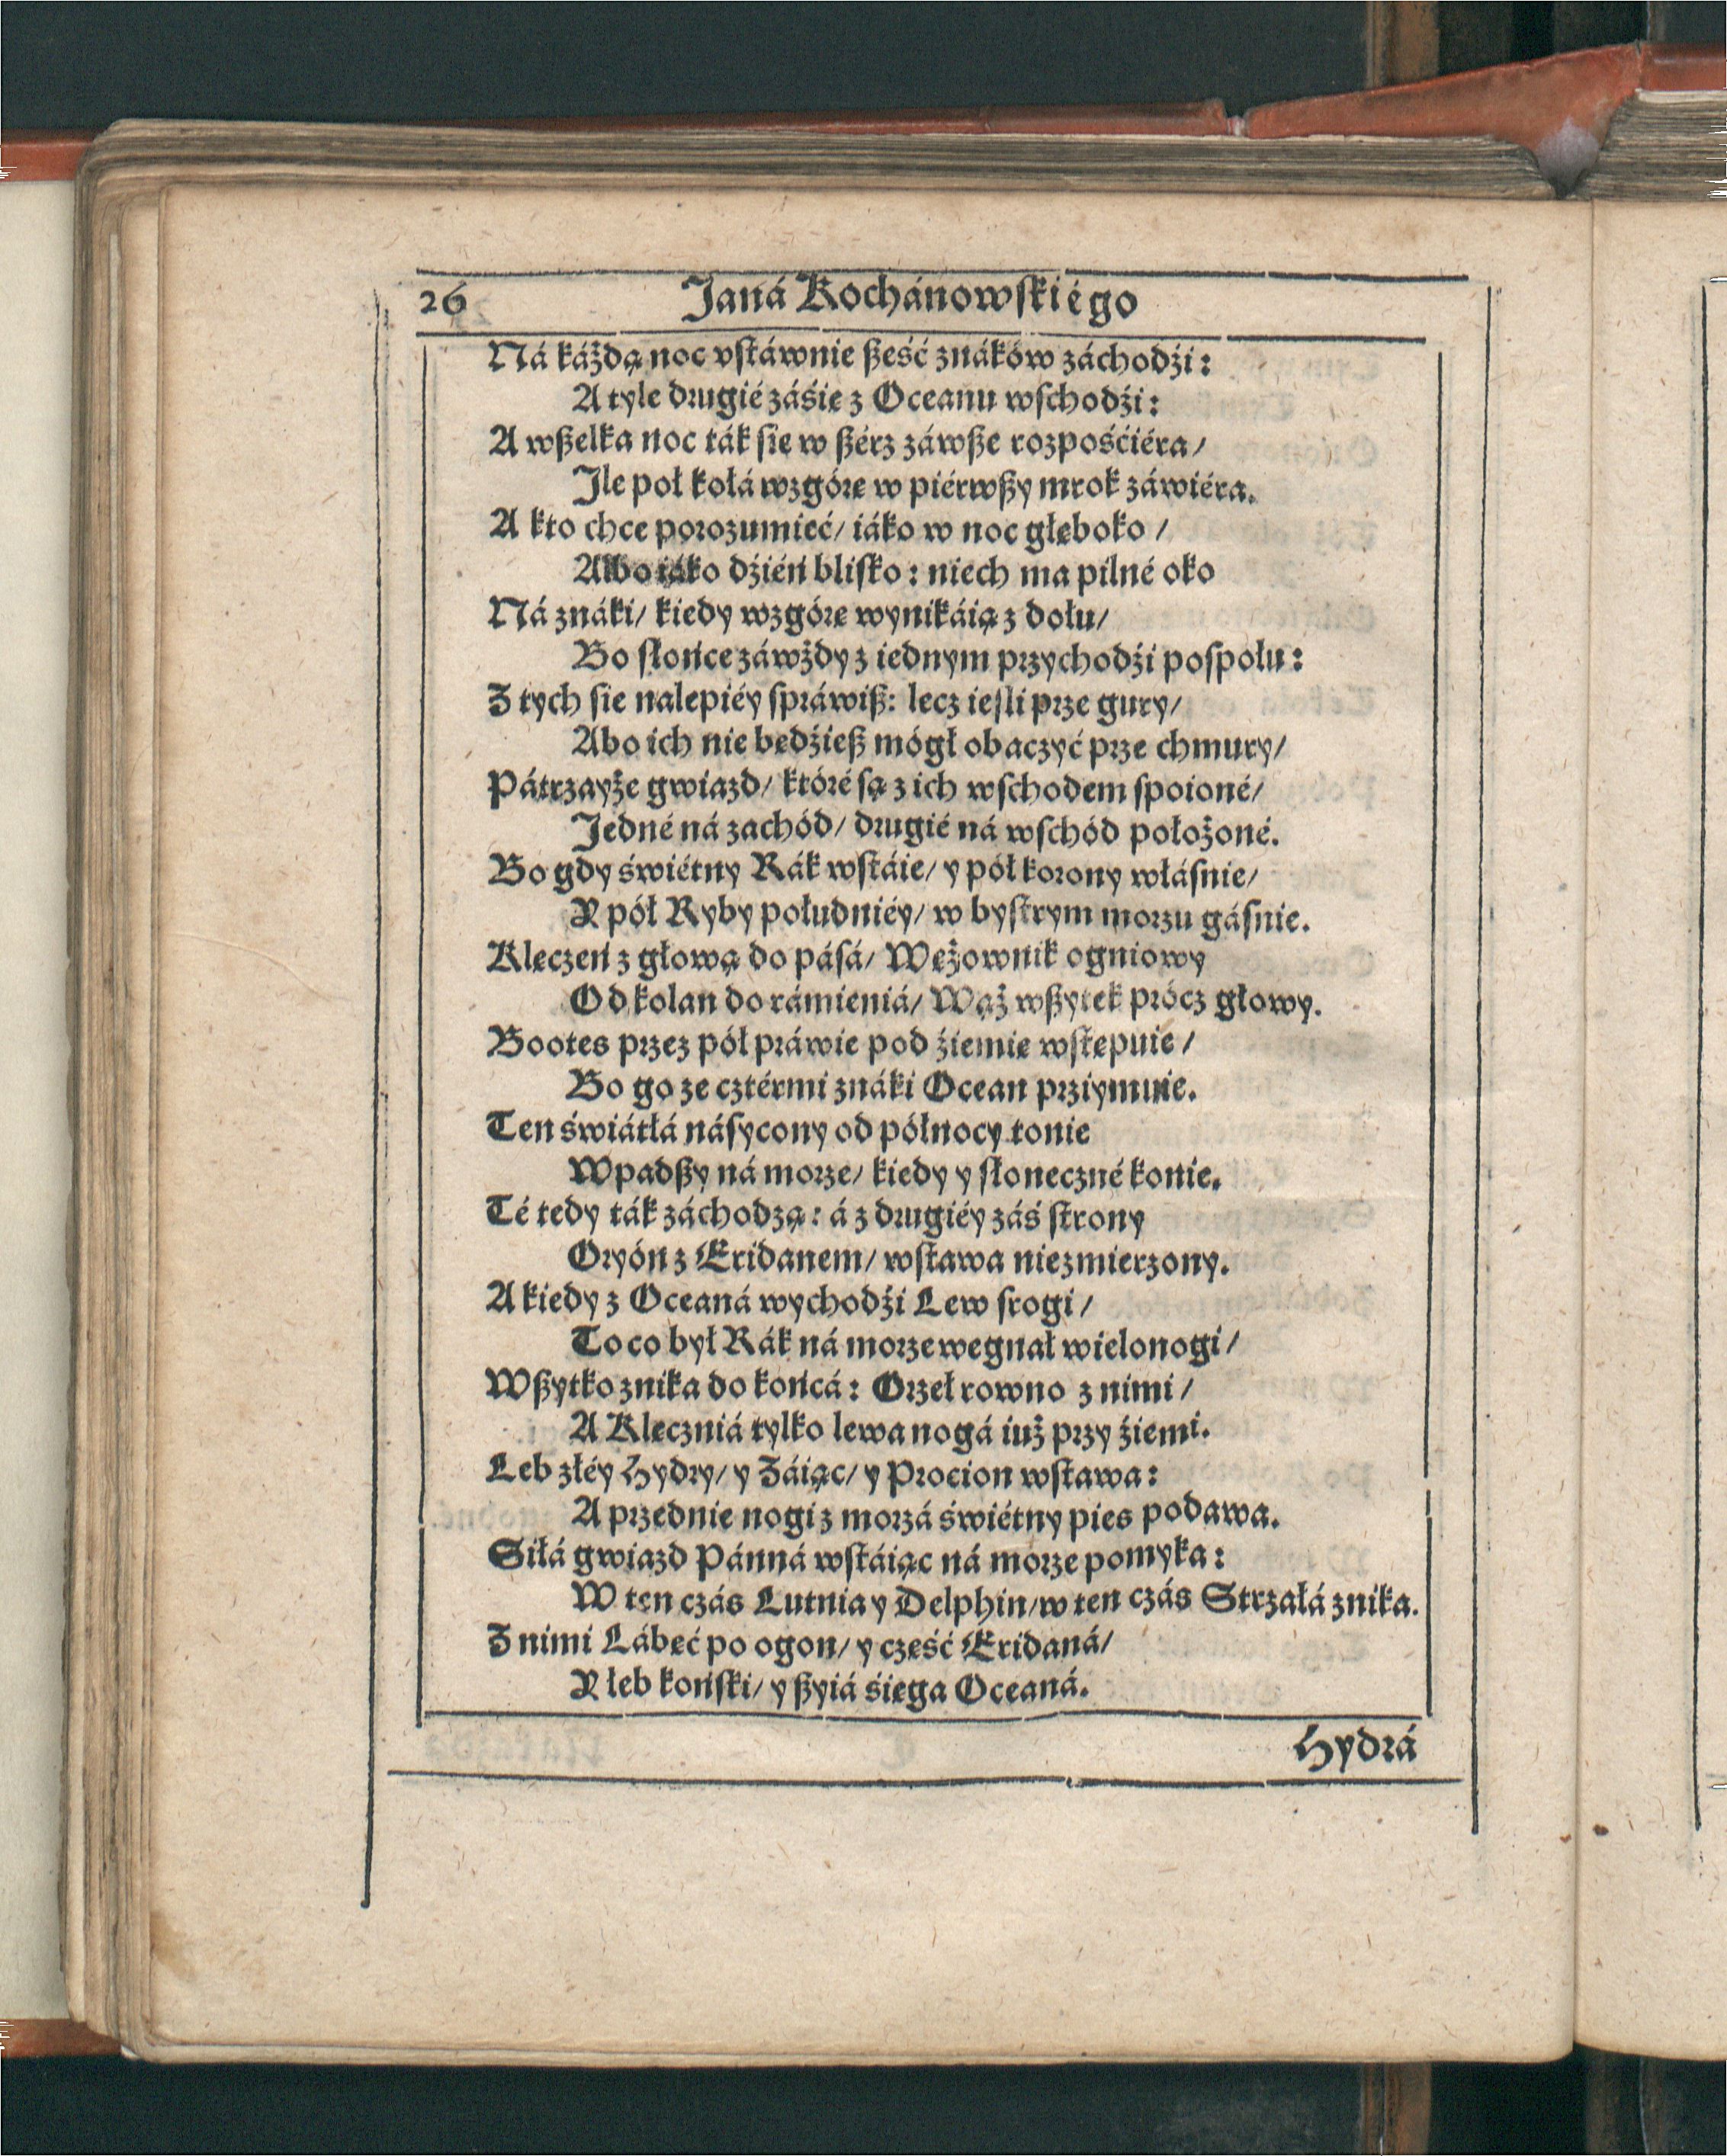 26 Janá Kochánowskiégo
Ná káżdą noc vſtáwnie ßeść znáków záchodźi:
A tyle drugié záśię z Oceanu wſchodźi:
A wßelka noc ták ſię w ßérz záwße rozpośćiéra/
Jle poł kołá wzgórę w piérwßy mrok záwiéra.
A kto chce porozumieć/ iáko w noc głęboko/
Albo iáko dźień bliſko: niech ma pilné oko
Ná znáki/ kiedy wzgórę wynikáią z dołu/
Bo ſłońce záwżdy z iednym przychodźi poſpołu:
Z tych ſie nalepiéy ſpráwiß: lecz ieſli prze gury/
Abo ich nie będźieß mógł obaczyć prze chmury/
Pátrzayże gwiazd/ któré ſą z ich wſchodem ſpoioné/
Jedné ná zachód/ drugié ná wſchód położoné.
Bo gdy świétny Rák wſtáie/ y pół korony właſnie/
Y pół Ryby południéy/ w byſtrym morzu gáſnie.
Klęczeń z głową do páſá/ Wężownik ogniowy
Od kolan do rámieniá/ Wąż wßytek prócz głowy.
Bootes przez pół práwie pod źiemię wſtępuie/
Bo go ze cztérmi znáki Ocean prziymuie.
Ten świátłá náſycony od północy tonie
Wpadßy ná morze/ kiedy y ſłoneczné konie.
Té tedy ták záchodzą: á z drugiéy záś ſtrony
Oryón z Eridanem/ wſtawa niezmierzony.
A kiedy z Oceaná wychodźi Lew ſrogi/
To co był Rák ná morze wegnał wielonogi/
Wßytko znika do końcá: Orzeł rowno z nimi/
A Klęczniá tylko lewa nogá iuż przy źiemi.
Łeb złéy Hydry/ y Záiąc/ y Procion wſtawa:
A przednie nogi z morzá świétny pies podawa.
Siłá gwiazd Pánná wſtáiąc ná morze pomyka:
W ten czás Lutnia y Delphin/ w ten czás Strzałá znika.
Z nimi Łábęć po ogon/ y część Eridaná/
Y łeb końſki/ y ßyiá śięga Oceaná.
Hydrá